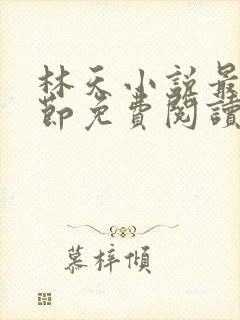 林天小说最
節免費閱讀
慕梓傾